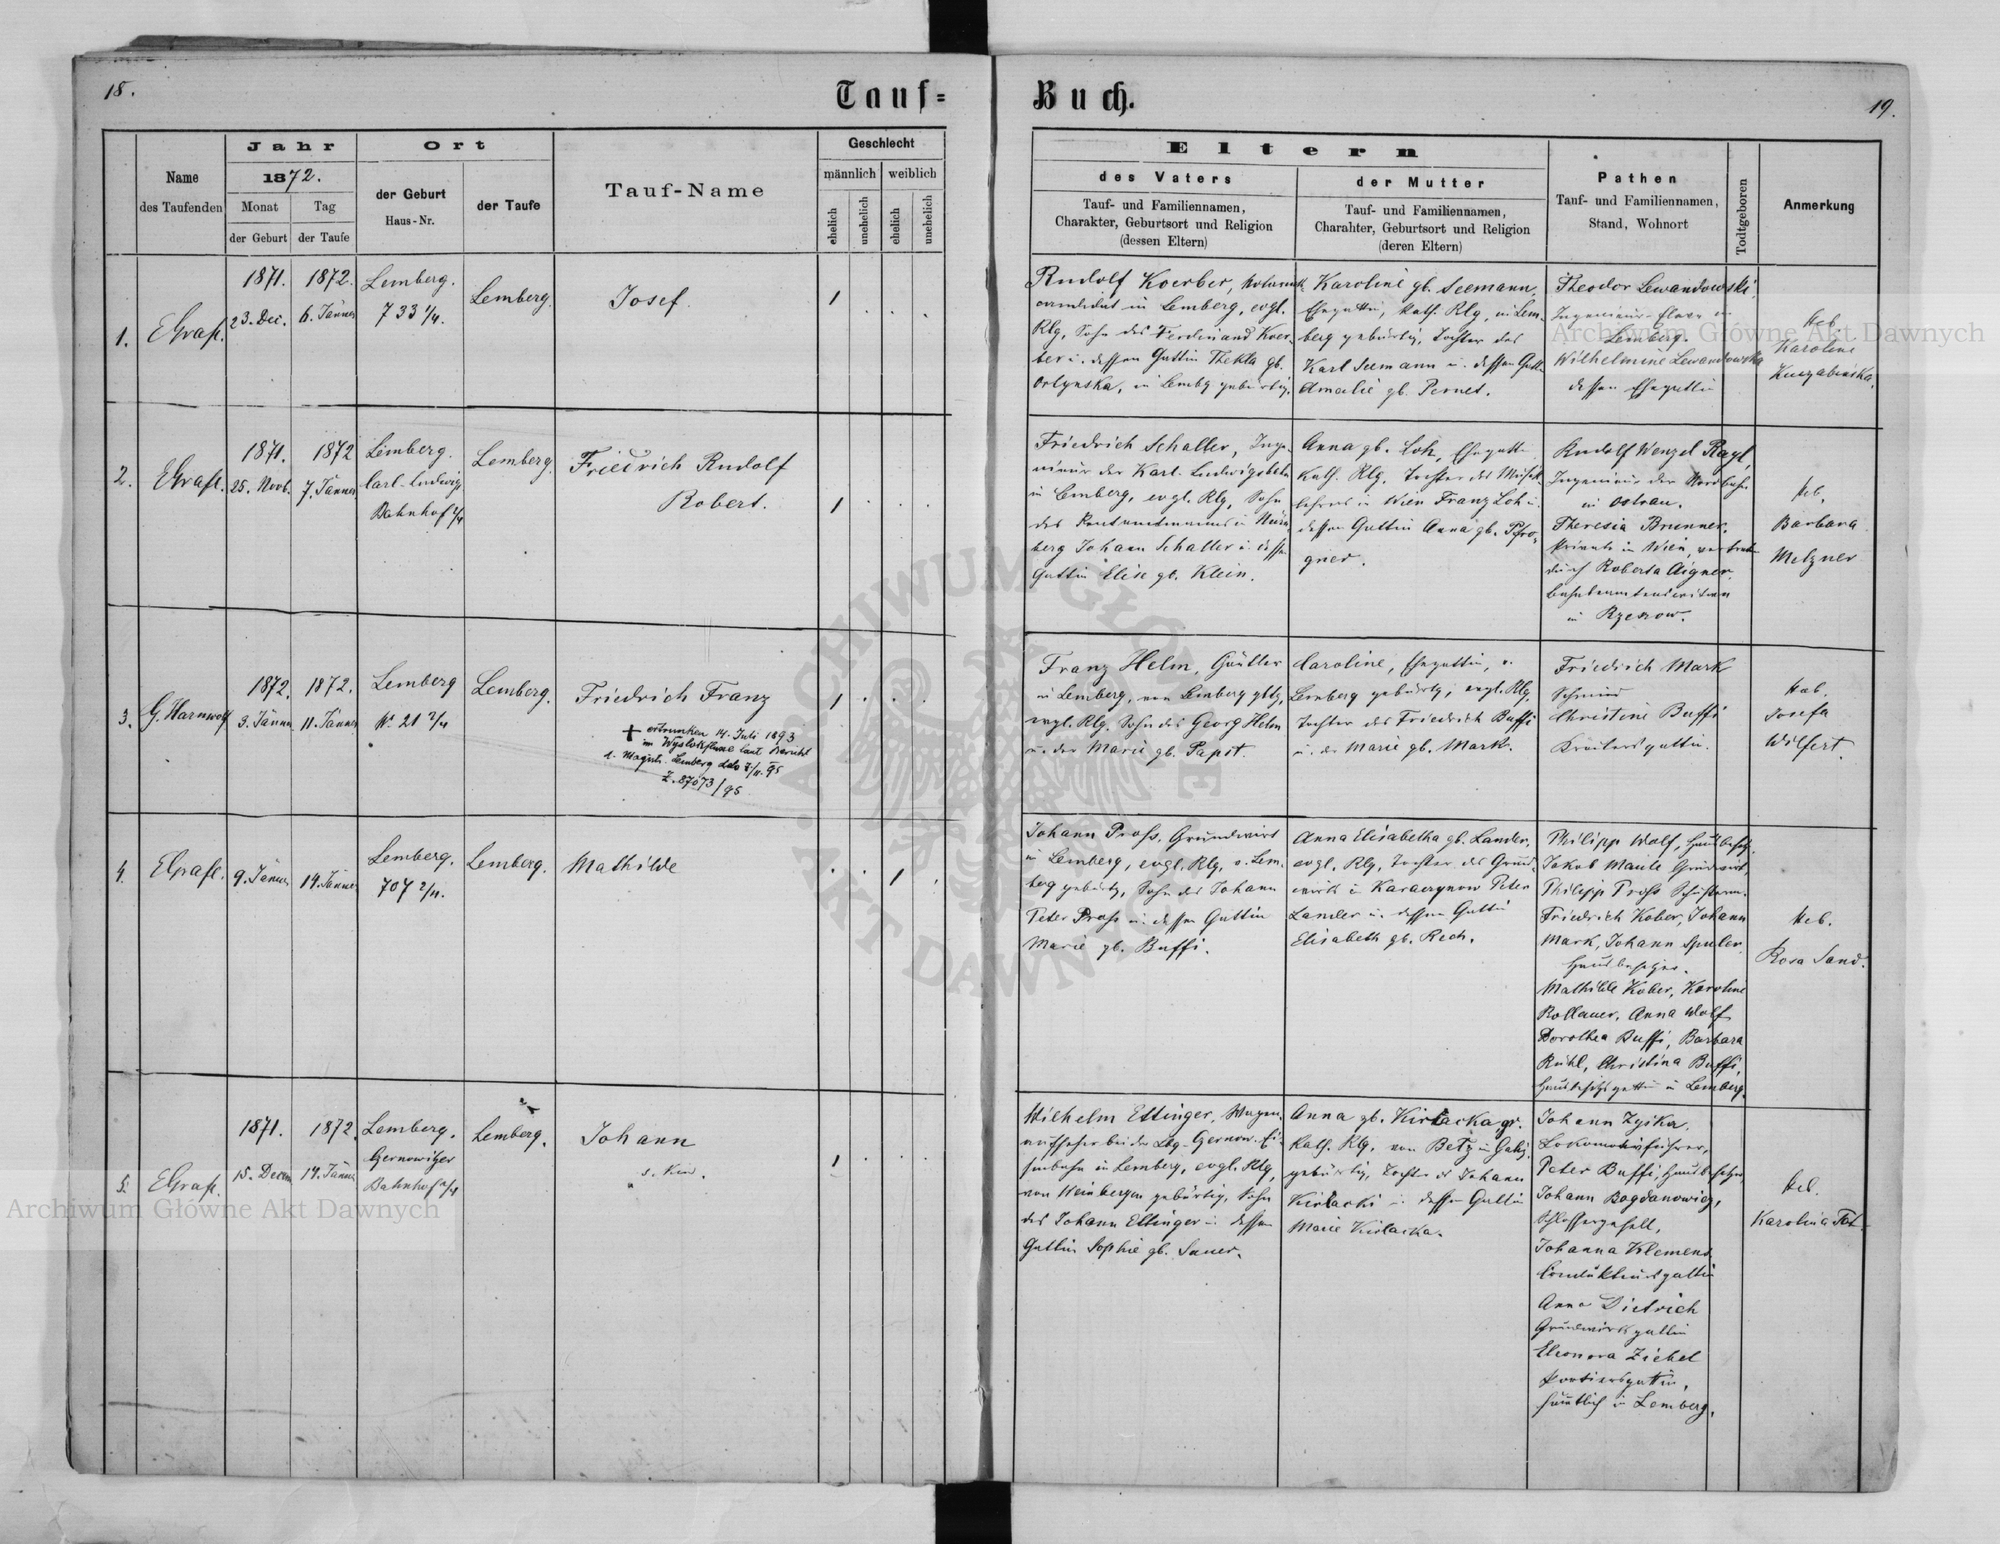 18.
Tauf=
Name
des Taufenden
Jahr
1872.
Monat
der Geburt
Tag
der Taufe
Ort
der Geburt
Haus-Nr.
der Taufe
Tauf-Name
Geschlecht
männlich
weiblich
ehelich
unehelich
ehelich
unehelich
1.
EGrafl.
1871.
23. Dec.
1872.
6. Jänner
Lemberg.
733 1/4.
Lemberg.
Josef
1
2.
EGrafl.
1871.
25. Novb.
1872
7. Jänner
Lemberg.
Carl-Ludwig
Bahnhof 2/4
Lemberg.
Friedrich Rudolf
Robert.
1
3.
G. Harnwolf
1872.
3. Jänner
1872.
11. Jänner
Lemberg
Nr 21 2/4
Lemberg.
Friedrich Franz
+ ertrunken 14. Juli 1893
im laut Bericht
d. Magistr. Lemberg
Z. 87073/95
1
4.
EGrafl.
9. Jänner
14. Jänner
Lemberg.
707 2/4.
Lemberg.
Mathilde
1
5.
EGrafl.
1871.
15. Decem
1872.
14. Jänner
Lemberg.
Czernowitzer
Bahnhof 2/4
Lemberg.
Johann
s. Kind.
1
Buch.
19.
Eltern
des Vaters
Tauf- und Familiennamen,
Charakter, Geburtsort und Religion
(dessen Eltern)
der Mutter
Tauf- und Familiennamen,
Charahter, Geburtsort und Religion
(deren Eltern)
Pathen
Tauf- und Familiennamen,
Stand, Wohnort
Todtgeboren
Anmerkung
Rudolf Koerber,
candidat in Lemberg, evgl.
Rlg, Sohn des Ferdinand Koer-
ber u. dessen Gattin Thekla gb.
Orlynska, in Lembg gebürtig.
Karoline gb. Seemann,
Ehegattin, kath. Rlg, in Lem-
berg gebürtig, Tochter des
Karl Seemann u. dessen Gattin
Amalie gb. Pernet.
Theodor Lewandowski,
Ingenieur-Eleve in
Lemberg.
Wilhelmine Lewandowska
dessen Ehegattin
Heb.
Karoline
Kuczabinska.
Friedrich Schaller, Inge-
nieur der Karl-Ludwigsbahn
in Lemberg, evgl. Rlg, Sohn
des Rentamtmanns in Nürn
berg Johann Schaller u. dessen
Gattin Elise gb. Klein.
Anna gb. Loh, Ehegattin
Kath. Rlg, Tochter des Musik-
lehrers in Wien Franz Loh u.
dessen Gattin Anna gb. Pfro-
gner.
Rudolf Wenzel Rayl,
Ingenieur der Nordbahn
in Ostrau.
Theresia Brunner,
Private in Wien, vertreten
durch Roberta Aigner,
in Rzeszow.
Heb.
Barbara
Metzner
Franz Helm, Gärtler
in Lemberg, von Lemberg gbtg,
evgl. Rlg, Sohn des Georg Helm
u. der Marie gb. Papst.
Caroline, Ehegattin, v.
Lemberg gebürtig, evgl. Rlg,
Tochter des Friedrich Buffi
u. der Marie gb. Mark.
Friedrich Mark
Schmied
Christine Buffi
Heb.
Josefa
Wilfert.
Johann Profs, Grundwirt
in Lemberg, evgl. Rlg, v. Lem-
berg gebürtig, Sohn des Johann
Peter Profs u. dessen Gattin
Marie gb. Buffi.
Anna Elisabetha gb. Lander,
evgl. Rlg, Tochter des Grund-
wirth in Karaczynow Peter
Lander u. dessen Gattin
Elisabeth gb. Rech.
Philipp Wolf, Hausbesitz.
Jakob Manle Grundwirt,
Philipp Profs Schusterm.
Friedrich Kober, Johann
Mark, Johann Spuler
Hausbesitzer.
Mathilde Kober, Karoline
Rollauer, Anna Wolf
Dorothea Buffi, Barbara
Rühl, Christina Buffi,
Hausbesitzgattin in Lemberg.
Heb.
Rosa Sand.
Wilhelm Ettinger, Wagen-
aufseher bei der Lbg-Czernow. Ei-
senbahn in Lemberg, evgl. Rlg,
von Weinbergen gebürtig, Sohn
des Johann Ettinger u. dessen
Gattin Sophie gb. Sauer.
Anna gb. Kirlacka, gr.
Kath. Rlg, von Betz in Galiz.
gebürtig, Tochter des Johann
Kirlacki u. dessen Gattin
Marie Kirlacka.
Johann Zyika,
Lokomotivführer,
Peter Buffi, Hausbesitzer
Johann Bogdanowicz,
Schlossergesell,
Johanna Klement
Condukteursgattin
Anna Dietrich
Grundwirthsgattin
Eleonora Ziebel
Portiersgattin,
sämtlich in Lemberg.
Heb.
Karolina
Archiwum Główne Akt Dawnych
Archiwum Główne Akt Dawnych
ARCHIWUM GŁÓWNE AKT DAWNYCH